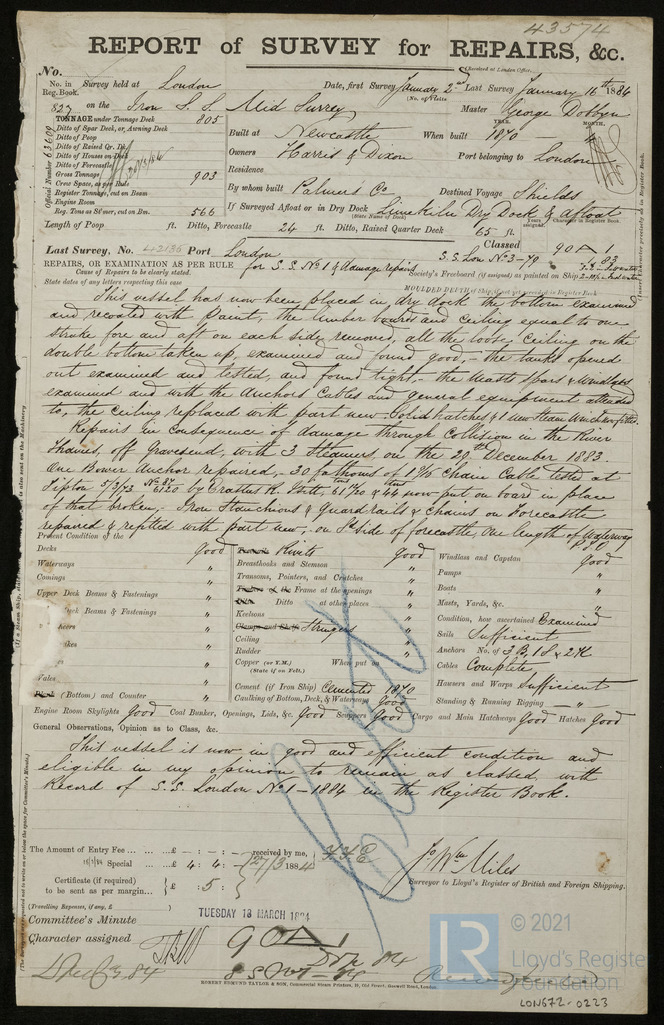 43574
REPORT of SURVEY for REPAIRS, &c.
(Received at London Office,
No.
No. in Reg. Book. Survey held at London Date, first Survey January 2nd Last Survey January 16th 1884
(No. of Visits)
827 on the Iron S.S. Mid Surrey Master George Dobbyn
TONNAGE under Tonnage Deck 805
Ditto of Spar Deck, or Awning Deck
Ditto of Poop
Ditto of Raised Qr. Dk.
Ditto of Houses on Deck
Ditto of Forecastle
Gross Tonnage 903
Crew Space, as per Rule
Register Tonnage, cut on Beam
Engine Room
Reg. Tons as St'mer, cut on Bm. 566
Official Number 63609
YEAR. MONTH.
Built at Newcastle When built 1870
Owners Harris & Dixon Port belonging to London
Residence
By whom built Palmers Co Destined Voyage Shields
If Surveyed Afloat or in Dry Dock Limekiln Dry Dock & Afloat
(State Name of Dock)
Length of Poop ft. Ditto, Forecastle 24 ft. Ditto, Raised Quarter Deck 65 ft.
Years assigned. Character in Register Book.
Last Survey, No. 42136 Port London Classed 90A1
S.S. Lon No 3-79 83
REPAIRS, OR EXAMINATION AS PER RULE for S.S. No 1 & damage repairs
Cause of Repairs to be clearly stated.
Society's Freeboard (if assigned) as painted on Ship
State dates of any letters respecting this case
MOULDED DEPTH of Ship, if not yet provided in Register Book
This vessel has now been placed in dry dock the bottom examined
and recoated with paint, the limber boards and ceiling equal to one
stroke fore and aft on each side removed, all the loose ceiling on the
double bottom taken up, examined and found good, - the tanks opened
out examined and tested, and found tight, - the Masts Spars & Windlass
examined and with the Anchors Cables and general equipment attended
to, the ceiling replaced with part new. Solid hatches & 1 new steam winch fitted.
Repairs in consequence of damage through Collision in the River
Thames, off Gravesend, with 3 Steamers, on the 29th December 1883.
One Bower Anchor repaired, - 30 fathoms of 1 9/16 Chain Cable tested at
Tipton 5/3/73 by Erastus K. 61 1/20 & 44 tons now put on board in place
of that broken, - Iron Stanchions & Guard rails & chains on Forecastle
repaired & refitted with part new, on Pt side of forecastle, One length of Waterway
Present Condition of the
Decks Good
Waterways "
Comings "
Upper Deck Beams & Fastenings "
Deck Beams & Fastenings "
Wales "
(Bottom) and Counter "
Rivits Good
Breasthooks and Stemson "
Transoms, Pointers, and Crutches "
Frame at the openings "
Ditto at other places "
Keelsons "
Stringers "
Ceiling "
Rudder "
Copper (or Y.M.) When put on
(State if on Felt.)
Cement (if Iron Ship) Cemented 1870
Caulking of Bottom, Deck, & Waterways Good
Windlass and Capstan Good
Pumps "
Boats "
Masts, Yards, &c. "
Condition, how ascertained Examined
Sails Sufficient
Anchors No. of 3 B, 1 S & 2 K
Cables Complete
Hawsers and Warps Sufficient
Standing & Running Rigging "
Engine Room Skylights Good Coal Bunker, Openings, Lids, &c. Good Scuppers Good Cargo and Main Hatchways Good Hatches Good
General Observations, Opinion as to Class, &c.
This vessel is now in good and efficient condition and
eligible in my opinion to remain as classed, with
Record of S.S. London No 1 - 1884 in the Register Book.
The Amount of Entry Fee ... £ - : - : - received by me,
Special ... £ 4 : 4 : - 27/3 1884
Certificate (if required) to be sent as per margin... £ : 5 :
(Travelling Expenses, if any, £ )
Jos Wm Miles
Surveyor to Lloyd's Register of British and Foreign Shipping.
Committee's Minute TUESDAY 18 MARCH 1884
Character assigned 90A1
ROBERT EDMUND TAYLOR & SON, Commercial Steam Printers, 19, Old Street, Goswell Road, London.
LR © 2021
Lloyd's Register
Foundation
LON672-0223